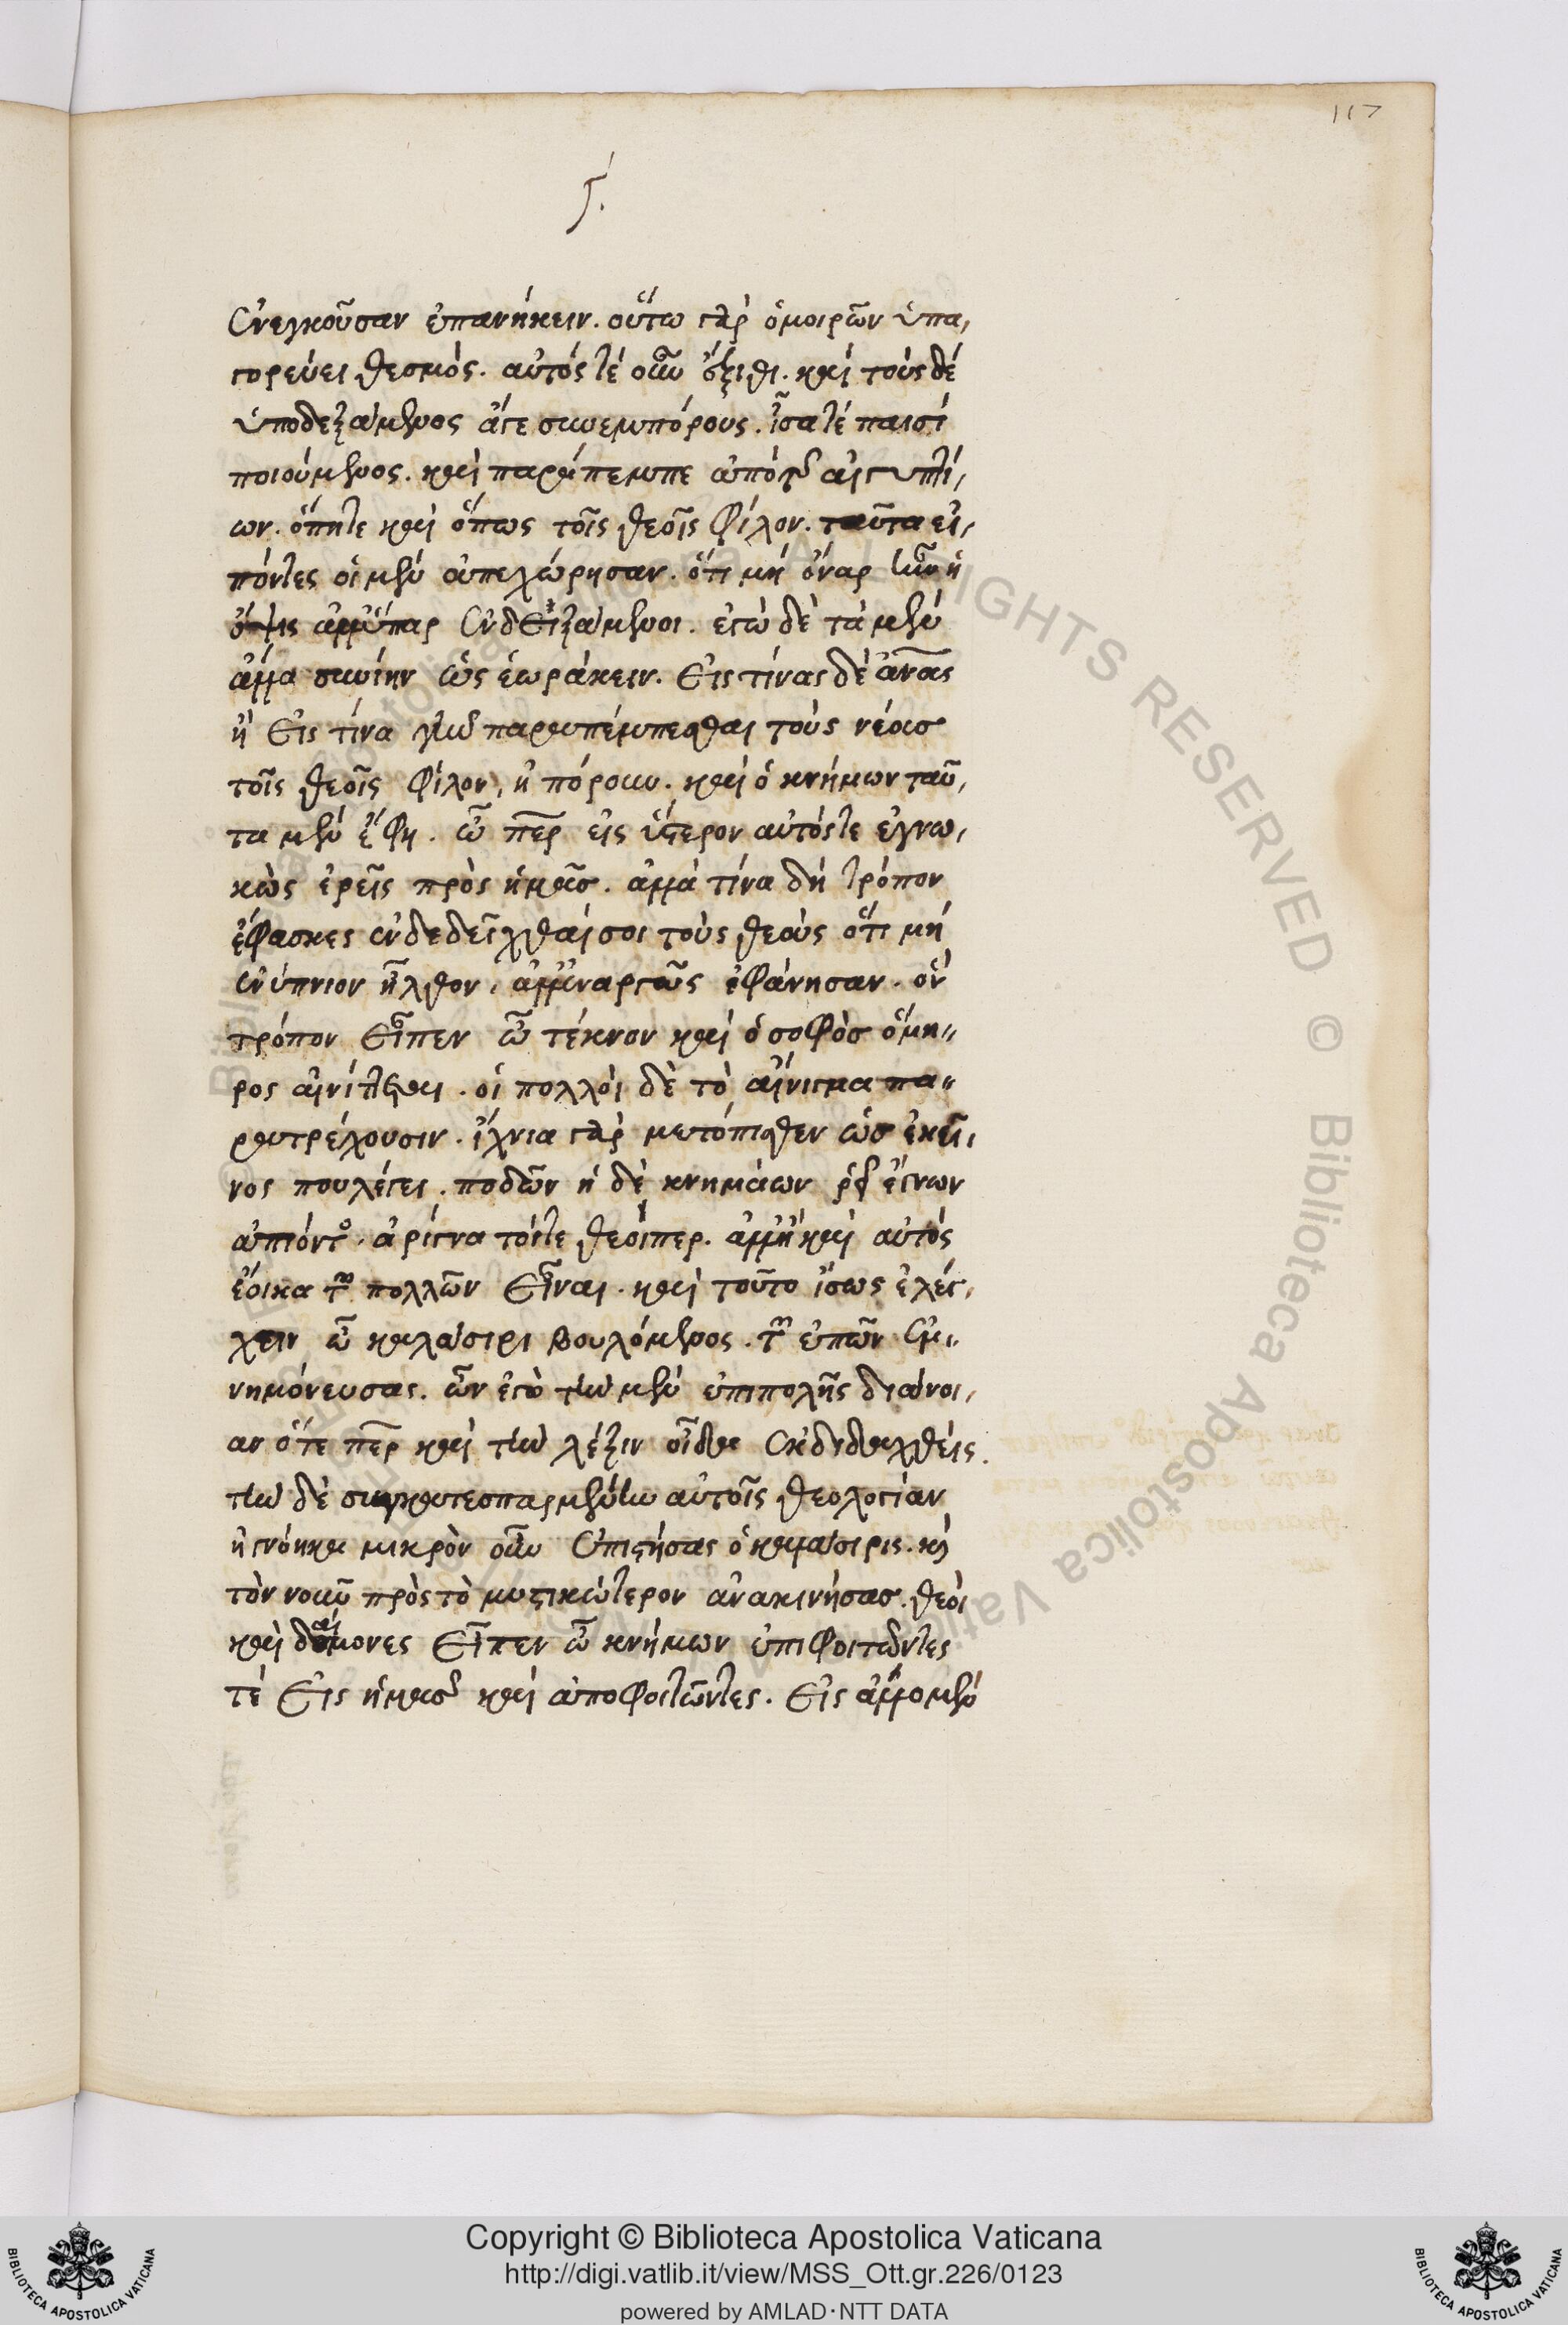 117
ϛ́.
ἐνεγκοῦσαν ἐπανήκειν. οὕτω γὰρ ὁ μοιρῶν ὑπα,
γορεύει θεσμός. αὐτός τέ οὖν ἔξιθι. καὶ τούς δέ
ὑποδεξάμενος ἅτε συνεμπόρους. ἶσα τέ παισί
ποιούμενος. καὶ παράπεμπε ἀπό τῶν αἰγυπτί,
ων. ὅπητε καὶ ὅπως τοῖς θεοῖς φίλον. ταῦτα εἰ,
πόντες οἱ μέν ἀπεχώρησαν. ὅτι μή ὄναρ ἦν ἡ
ὄψις ἀλλ' ὕπαρ ἐνδειξάμενοι. ἐγώ δὲ τὰ μέν
ἄλλα συνίην ὡς ἑωράκειν. εἰς τίνας δὲ ἀνους
ἢ εἰς τίνα γῆν παραπέμπεσθαι τοὺς νέους
τοῖς θεοῖς φίλον, ἠπόρουν. καὶ ὁ κνήμων ταῦ,
τα μέν ἔφη. ὦ περ εἰς ὕστερον αὐτός τε ἐγνω,
κὼς ἐρεῖς πρὸς ἡμᾶς. ἀλλὰ τίνα δή τρόπον
ἔφασκες ἐνδεδεῖχθαί σοι τοὺς θεοὺς ὅτι μή
ἐνύπνιον ἦλθον, ἀλλ' ἐναργῶς ἐφάνησαν. ὅν
τρόπον εἶπεν ὦ τέκνον καὶ ὁ σοφὸς ὅμη,,
ρος αἰνίττεται. οἱ πολλοὶ δὲ τὸ αἴνιγμα πα,,
ρατρέχουσιν. ἴχνια γὰρ μετόπισθεν ὡς ἐκεῖ,
νος που λέγει. ποδῶν ἠ δὲ κνημάων ῥεῖ' ἔγνων
ἀπιόντος, ἀρίγνα τόι τε θεόι περ. ἀλλ' ἢ καὶ αὐτὸς
ἔοικα τῶν πολλῶν εἶναι. καὶ τοῦτο ἴσως ἐλέγ,
χειν ὦ καλάσιρι βουλόμενος. τῶν ἐπῶν ἐμ,
νημόνευσας. ὧν ἐγὼ τὴν μέν ἐπιπολῆς διάνοι,
αν ὅτε περ καὶ τὴν λέξιν οἶδα ἐκδιδαχθείς.
τὴν δὲ συγκατεσπαρμένην αὐτοῖς θεολογίαν
ἠγνόηκα μικρὸν οὖν ἐπιστήσας ὁ καλάσιρις. καὶ
τὸν νοῦν πρὸς τὸ μυστικώτερον ἀνακινήσας. θεοὶ
καὶ δαίμονες εἶπεν ὦ κνήμων ἐπιφοιτῶντες
τέ εἰς ἡμᾶς καὶ ἀποφοιτῶντες. εἰς ἄλλο μέν
Copyright © Biblioteca Apostolica Vaticana
http://digi.vatlib.it/view/MSS_Ott.gr.226/0123
powered by AMLAD·NTT DATA